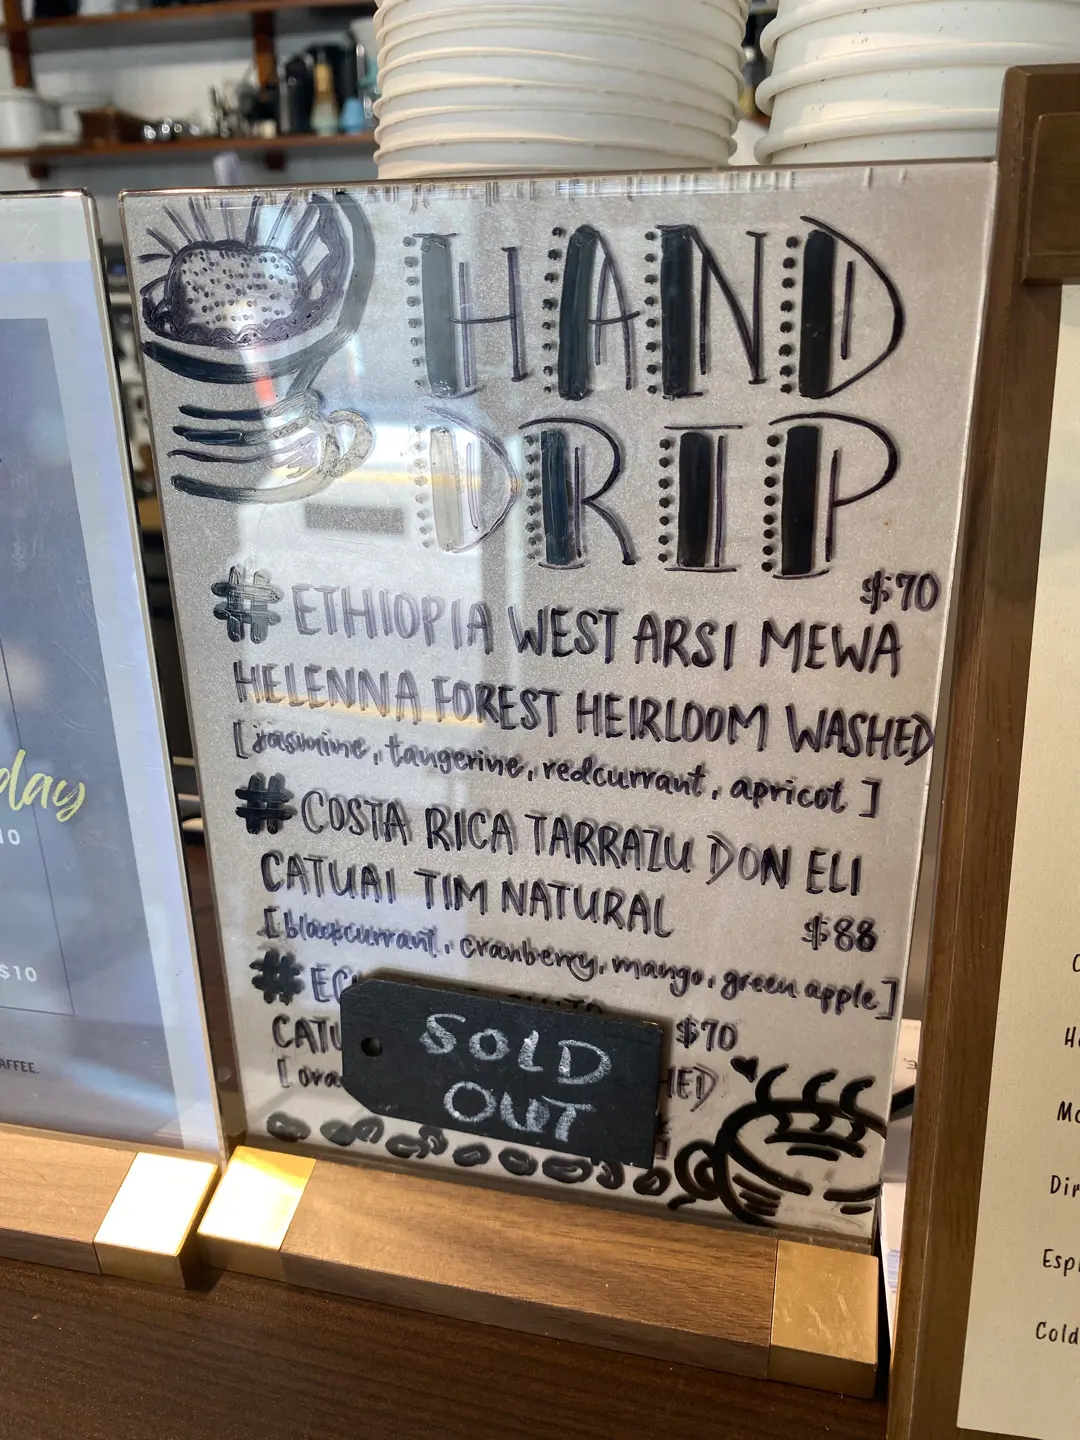 HAND
DRIP
$70
# ETHIOPIA WEST ARSI MEWA
HELENNA FOREST HEIRLOOM WASHED
[jasmine, tangerine, redcurrant, apricot]
# COSTA RICA TARRAZU DON ELI
CATUAI TIM NATURAL
$88
[blackcurrant, cranberry, mango, green apple]
#
$70
SOLD
OUT
day
$10